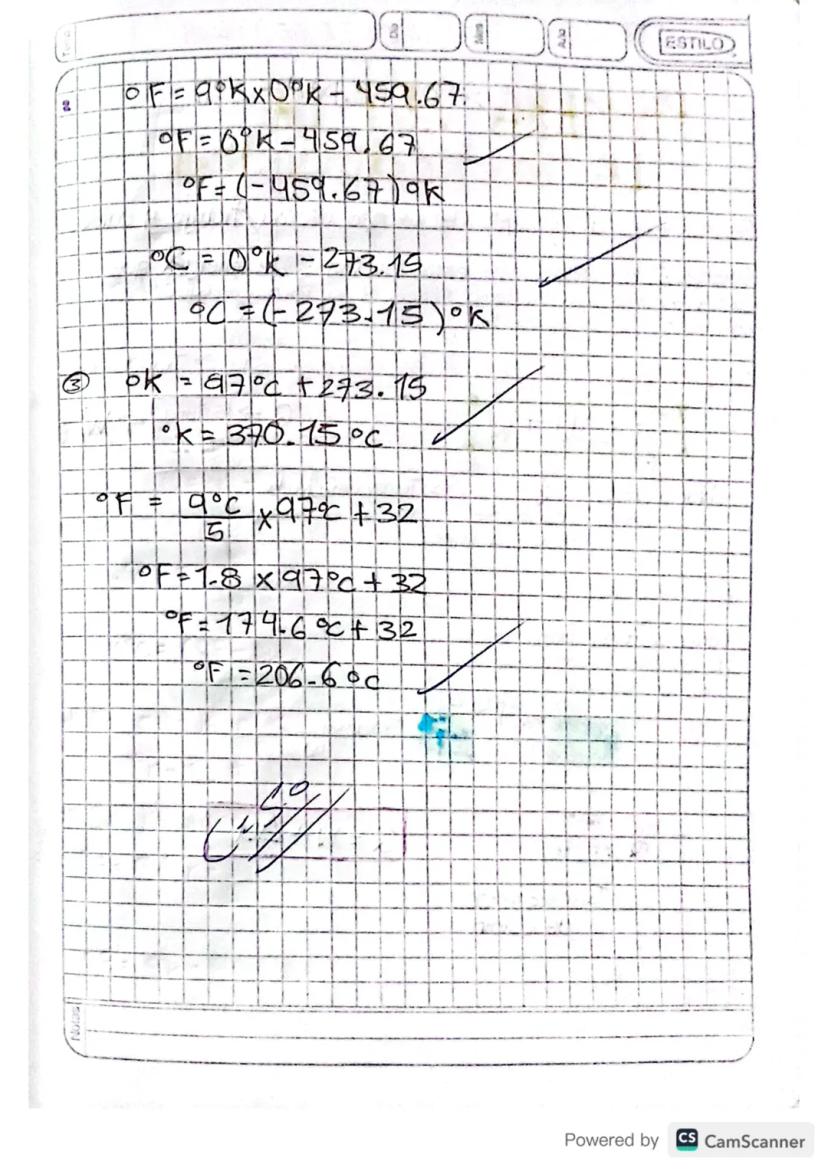 ESTILO
°F = 9°K x 0°K - 459.67
°F = 0°K - 459.67
°F = (-459.67)°K
°C = 0°K - 273.15
°C = (-273.15)°K
③ °K = 97°C + 273.15
°K = 370.15°C
°F = 9°C/5 x 97°C + 32
°F = 1.8 x 97°C + 32
°F = 174.6°C + 32
°F = 206.6°C
Notas
Powered by CS CamScanner